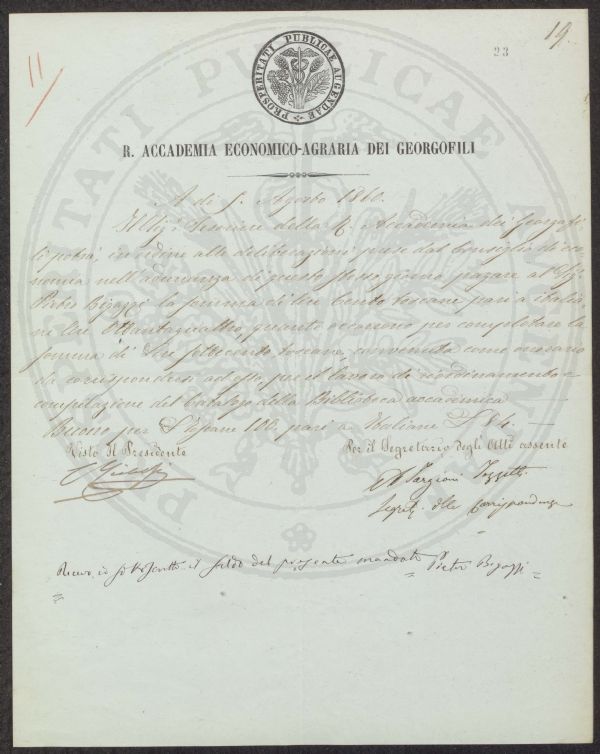 11
19.
23
PROSPERITATI PUBLICAE AUGENDAE
R. ACCADEMIA ECONOMICO-AGRARIA DEI GEORGOFILI
A dì 5. Agosto 1860.
Il Sig. Tesoriere della R. Accademia dei Georgofi
li potrà, in ordine alle deliberazioni prese dal Consiglio di eco
nomia nell'adunanza di questo stesso giorno pagare al Sig.
Pietro Bigazzi la somma di lire Cento toscane pari a italia
ne lire Ottantaquattro, quanto occorrono per completare la
somma di Lire settecento toscane, convenuta come onorario
da corrispondersi ad esso, per il lavoro di riordinamento e
compilazione del Catalogo della Biblioteca accademica
Buono per Toscane 100. pari a Italiane £ 84. —
Visto Il Presidente
Per il Segretario degli Atti assente
A Targioni Tozzetti
Segret. delle Corrispondenze
Ricevo io sottoscritto il saldo del presente mandato
= Pietro Bigazzi =
PROSPERITATI PUBLICAE AUGENDAE